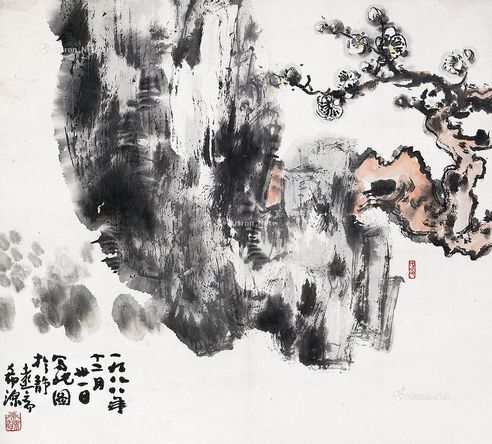 一九八八年
十二月
卅一日
写此图
於静
远斋
希源
Artron.Net